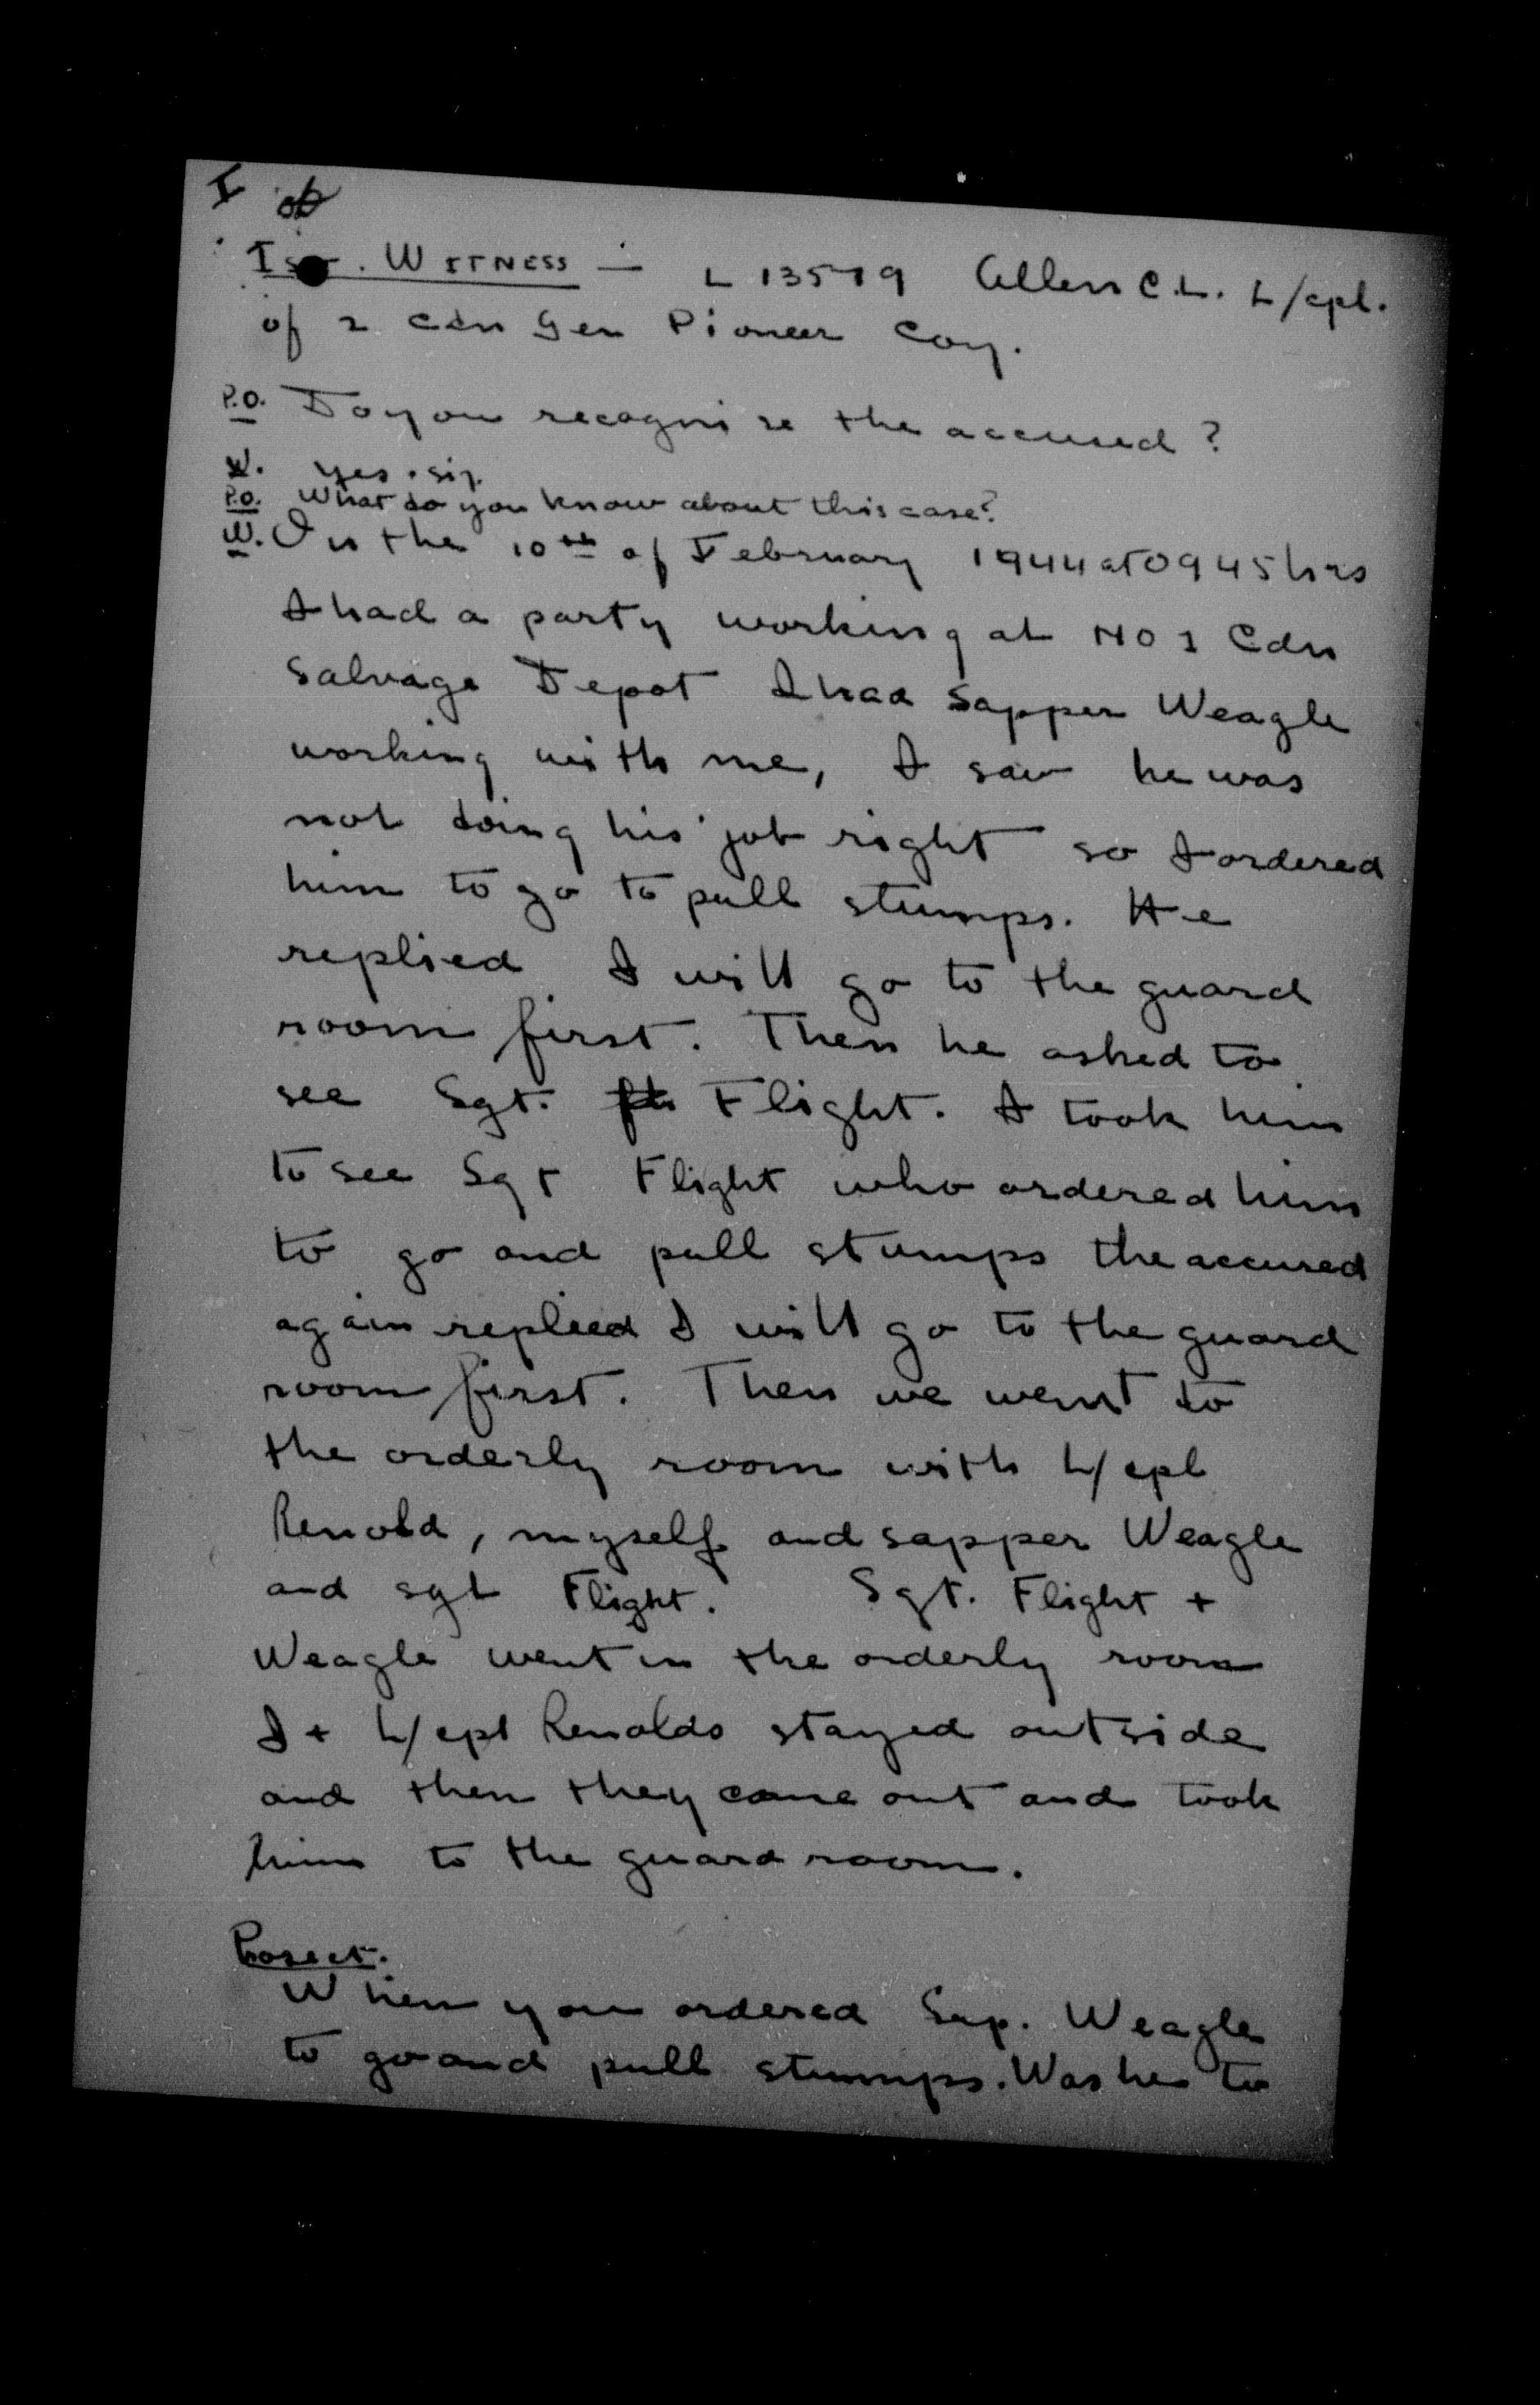 I
1st. WITNESS — L 13519 Allen C.L. L/cpl.
of 2 Cdn Gen Pioneer Coy.
P.O. Do you recognise the accused ?
W. Yes. sir.
P.O. What do you know about this case?
W. On the 10th of February 1944 at 0945 hrs
I had a party working at No 1 Cdn
Salvage Depot I had Sapper Weagle
working with me, I saw he was
not doing his job right so I ordered
him to go to pull stumps. He
replied I will go to the guard
room first. Then he asked to
see Sgt. Flight. I took him
to see Sgt Flight who ordered him
to go and pull stumps the accused
again replied I will go to the guard
room first. Then we went to
the orderly room with L/cpl
Renold, myself and sapper Weagle
and sgt Flight. Sgt. Flight +
Weagle went in the orderly room
I + L/cpl Renolds stayed outside
and then they came out and took
him to the guard room.
Prosect.
When you ordered Sap. Weagle
to go and pull stumps. Was he to